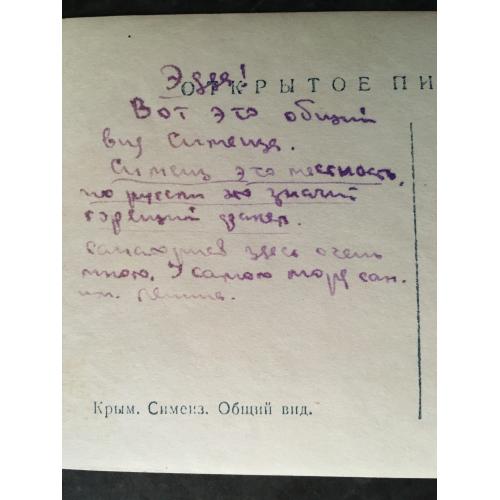 Эдда!
ОТКРЫТОЕ ПИ
Вот это общий
вид Симеиза.
Симеиз это местность,
по русски это значит
горящий
санаториев здесь очень
много. У самого моря сан.
им. Ленина.
Крым. Симеиз. Общий вид.